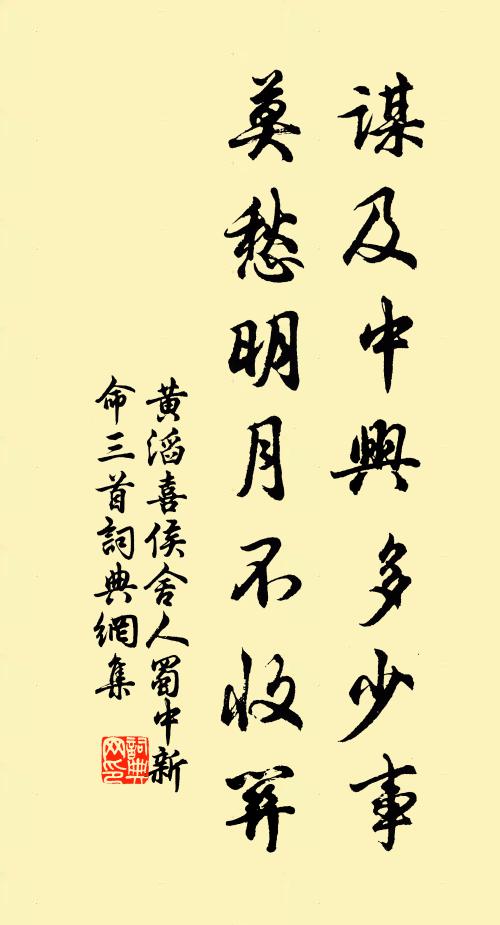 謀及中興多少事
莫愁明月不收
黃滔喜侯舍人蜀中新
命三首詞典網集
詞典
网印